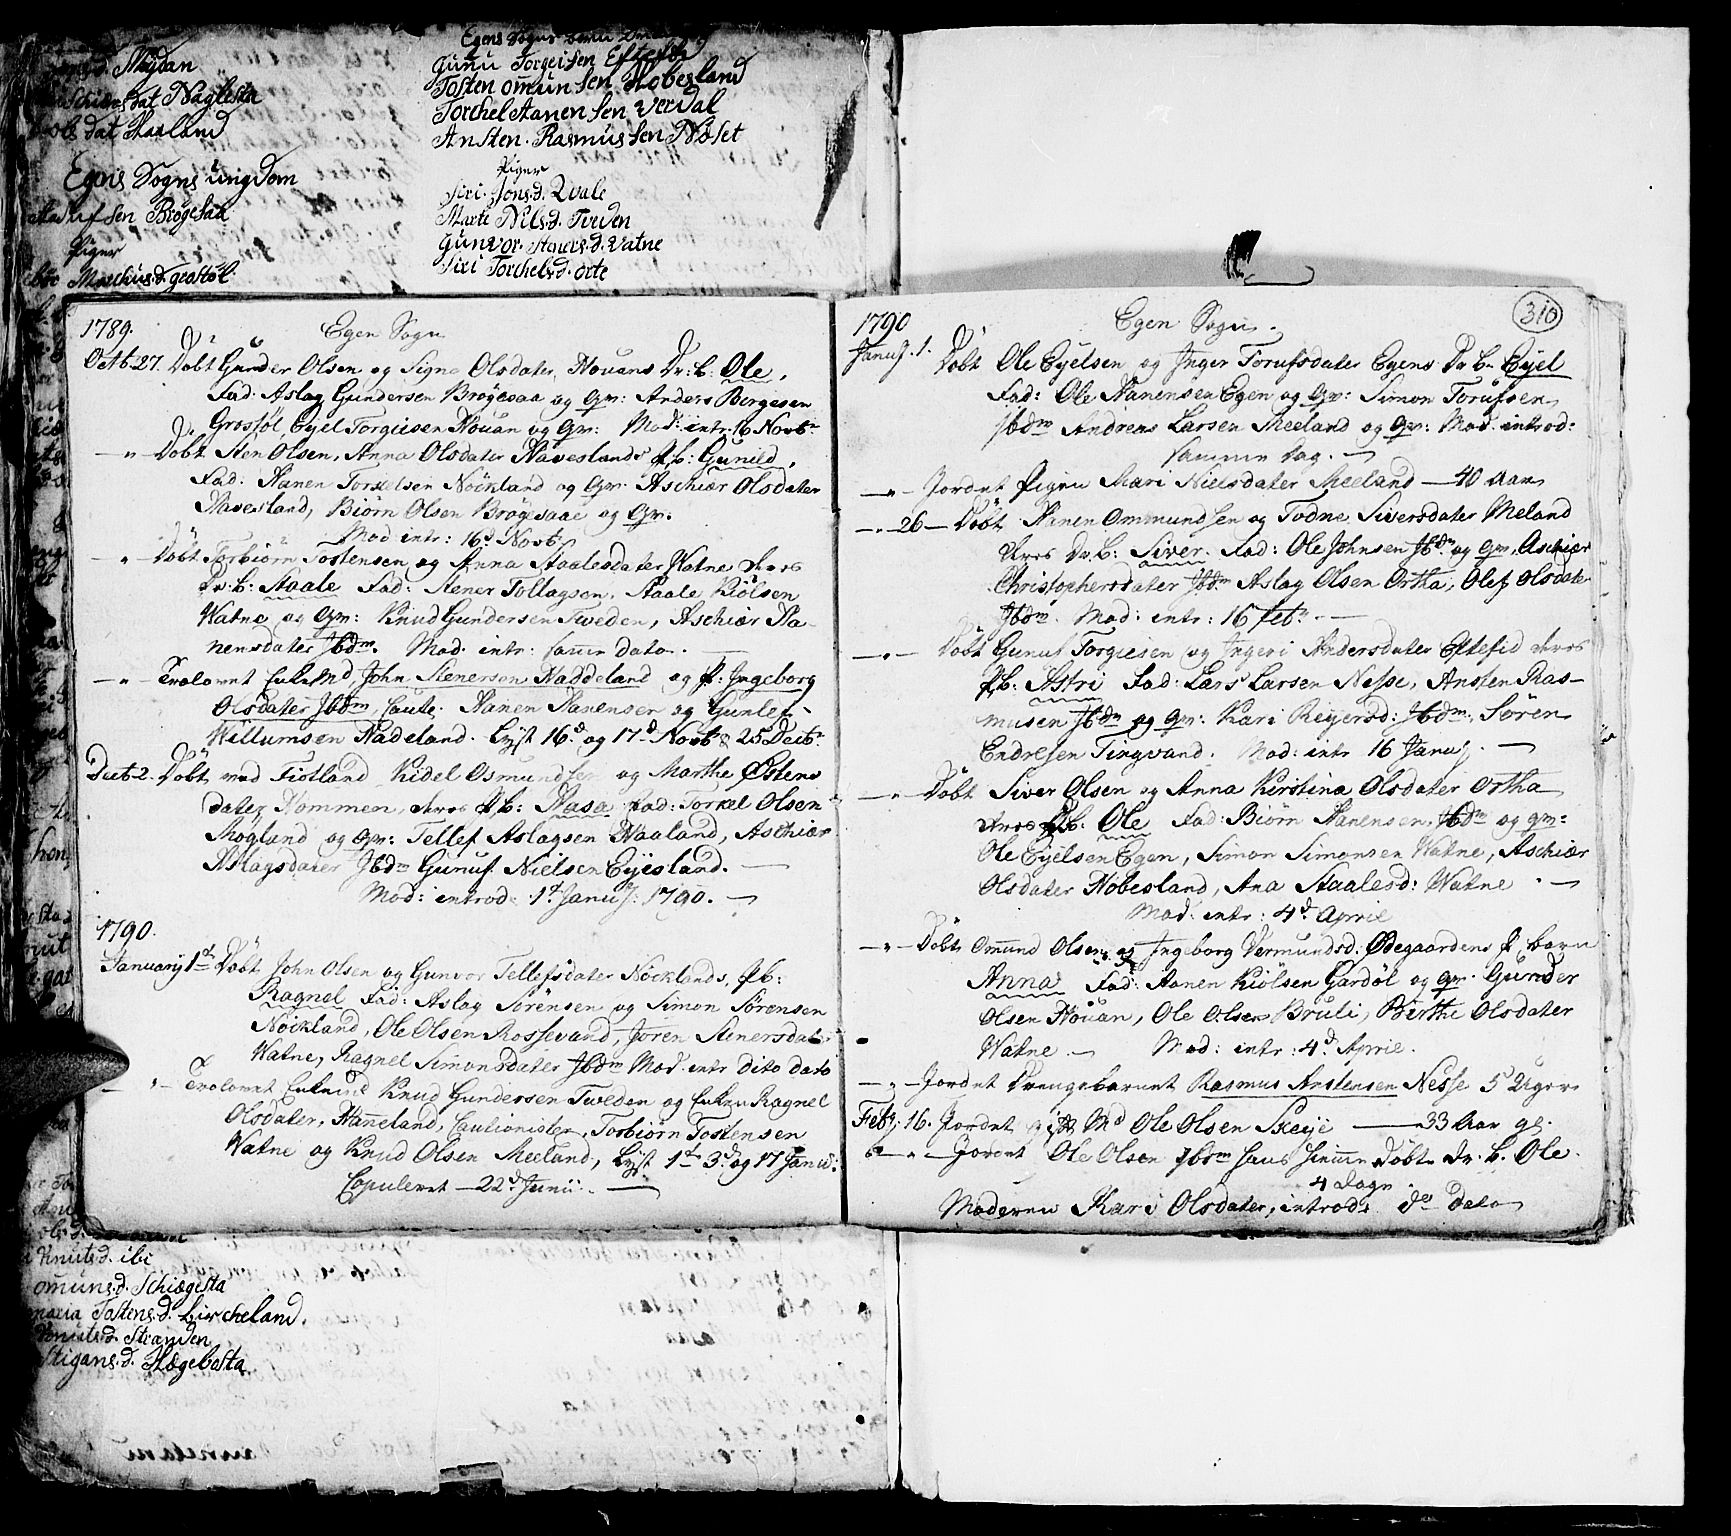 Maydan
dat Naglesta
dat Haaland
Egens Sogns ungdom
sen Brøgesaa
Piger
Marchus.d. geostøl
Egens Sogns
Gunu Torgeisen Eftestø
Tosten omunsen Høbesland
Torchel Aanensen Verdal
Ansten Rasmussen Nøset
Piger
Siri Jons.d. Qvale
Marte Nils.d. Tveden
Gunvor Aners.d. Vatne
Siri Torchelsd. orte
1789. Egen Sogn
Octb 27. Döbt Gunder Olsen og Signe Olsdater, Houans Dr: b: Ole,
Fad: Aslag Gundersen Brøgesaa og qv: Anders Børgesen
Grostøl Eyel Torgiesen Houan og qv: Mod: intr: 16 Novbr
— " — Döbt Sten Olsen, Anna Olsdater Haveslands P.b: Gunild,
Fad: Aanen Torkelsen Nöckland og qv: Aschiær Olsdater
Havesland, Biörn Olsen Brøgesaae og qv:
Mod intr: 16d Novb
— " Döbt Torbiörn Tostensen og Anna Staalesdater Watne deres
Dr: b: Staale Fad: Stener Tollagsen, Staale Kiölsen
Watne og qv: Knud Gundersen Tweden, Aschiær Aa-
nensdater Jbdm. Mod: intr: samme dato. —
— " — Trolovet Enkemd. John Stenersen Haddeland og P. Ingeborg
Olsdater Jbdm, Caute: Aanen Aanensen og Gunlef
Willumsen Hadeland. Lyst 16d og 17d Novb & 25 Decbr
Decb 2. Döbt ved Fiotland Kidel Osmundsen og Marthe Østens
dater Hommen, deres P.b: Aasa Fad: Torkel Olsen
Mogland og qv: Tellef Aslagsen Haaland, Aschiær
Aslagsdater Jbdm Gunuf Nielsen Eyesland. —
Mod: introd: 1d Januj: 1790. —
1790.
January 1st Döbt John Olsen og Gunvor Tellefsdater Nöcklands, P.b:
Ragnel Fad: Aslag Sörensen og Simon Sörensen
Nöckland, Ole Olsen Rossevand, Joren Stenersdater
Watne, Ragnel Simonsdater Jbdm Mod: intr dito dato
— " — Trolovet Enkemd Knud Gundersen Tweden og Enken Ragnel
Olsdater, Hanneland, Cautionister, Torbiörn Tostensen
Watne og Knud Olsen Meeland, Lyst 1st 3d og 17 Janu:
Copuleret — 22d Junii. —
1790 Egen Sogn. 310
Januj. 1. Döbt Ole Eyelsen og Inger Torufsdater Egens Dr b. Eyel
Fad: Ole Aanensen Egen og qv: Simon Torufsen
Jbdm Andreas Larsen Meeland og qv: Mod: introd:
samme dag. —
— " — Jordet Pigen Mari Nielsdater Meeland — 40 Aar
— " 26 — Döbt Aanen Ommundsen og Todne Siversdater Meland
deres Dr. b: Siver. Fad: Ole Johnsen Jbdm og qv, Aschiær
Christophersdater Jbdm Aslag Olsen Ortha, Olef Olsdater
Jbdm. Mod: intr: 16 Feb. —
— " — Döbt Gunuf Torgiesen og Ingeri Andersdater Eftestid deres
P.b: Astri Fad: Lars Larsen Nesse, Ansten Ras-
musen Jbdm og qv: Kari Reyersd: Jbdm, Sören
Endresen Tingvand. Mod: intr 16 Januj. —
— " Döbt Siver Olsen og Anna Kirstina Olsdater Ortha
deres b. Ole Fad: Biörn Aanensen, Jbdm og qv:
Ole Eyelsen Egen, Simon Simonsen Watne, Aschiær
Olsdater Höbesland, Ana Staalesd: Watne. —
Mod: intr: 4d April
— " — Döbt Omund Olsen og Ingeborg Vermundsd: Ødegaardens P. barn
Anna Fad: Aanen Kiölsen Gardöl og qv. Gunder
Olsen Houan, Ole Olsen Bruli, Birthe Olsdater
Watne — Mod: intr: 4d April.
— " — Jordet Drengebarnet Rasmus Anstensen Nesse 5 Uger
Feby 16. Jordet Md Ole Olsen Skeye — 33 Aar gl.
— " — Jordet Ole Olsen Jbdm hans hiemme Döbte Dr. b. Ole.
4 Dage
Moderen Kari Olsdater, introd: do Dato
Knuts.d. ibi
omuns.d. Schiægesta
maria Tostens.d. Lircheland
Knuts.d. Stranden
Stigans.d. Hægebosta